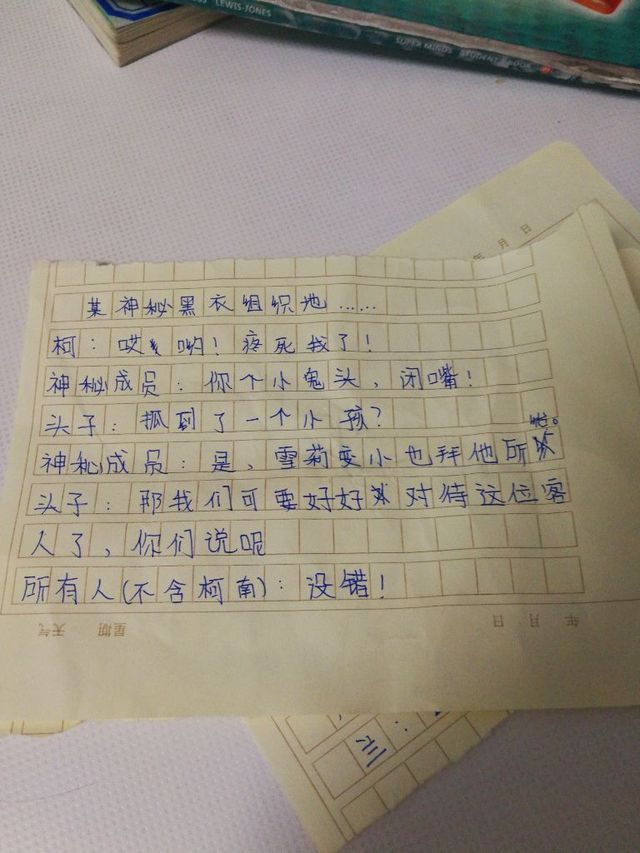 LEWIS-JONES
SUPER MINDS STUDENT'S BOOK
年 月 日
某神秘黑衣组织地……
柯：哎哟！疼死我了！
神秘成员：你个小鬼头，闭嘴！
头子：抓到了一个小孩？
神秘成员：是，雪莉变小也拜他所
头子：那我们可要好好对待这位客
人了，你们说呢
所有人(不含柯南)：没错！
天气 星期 日 月 年
三